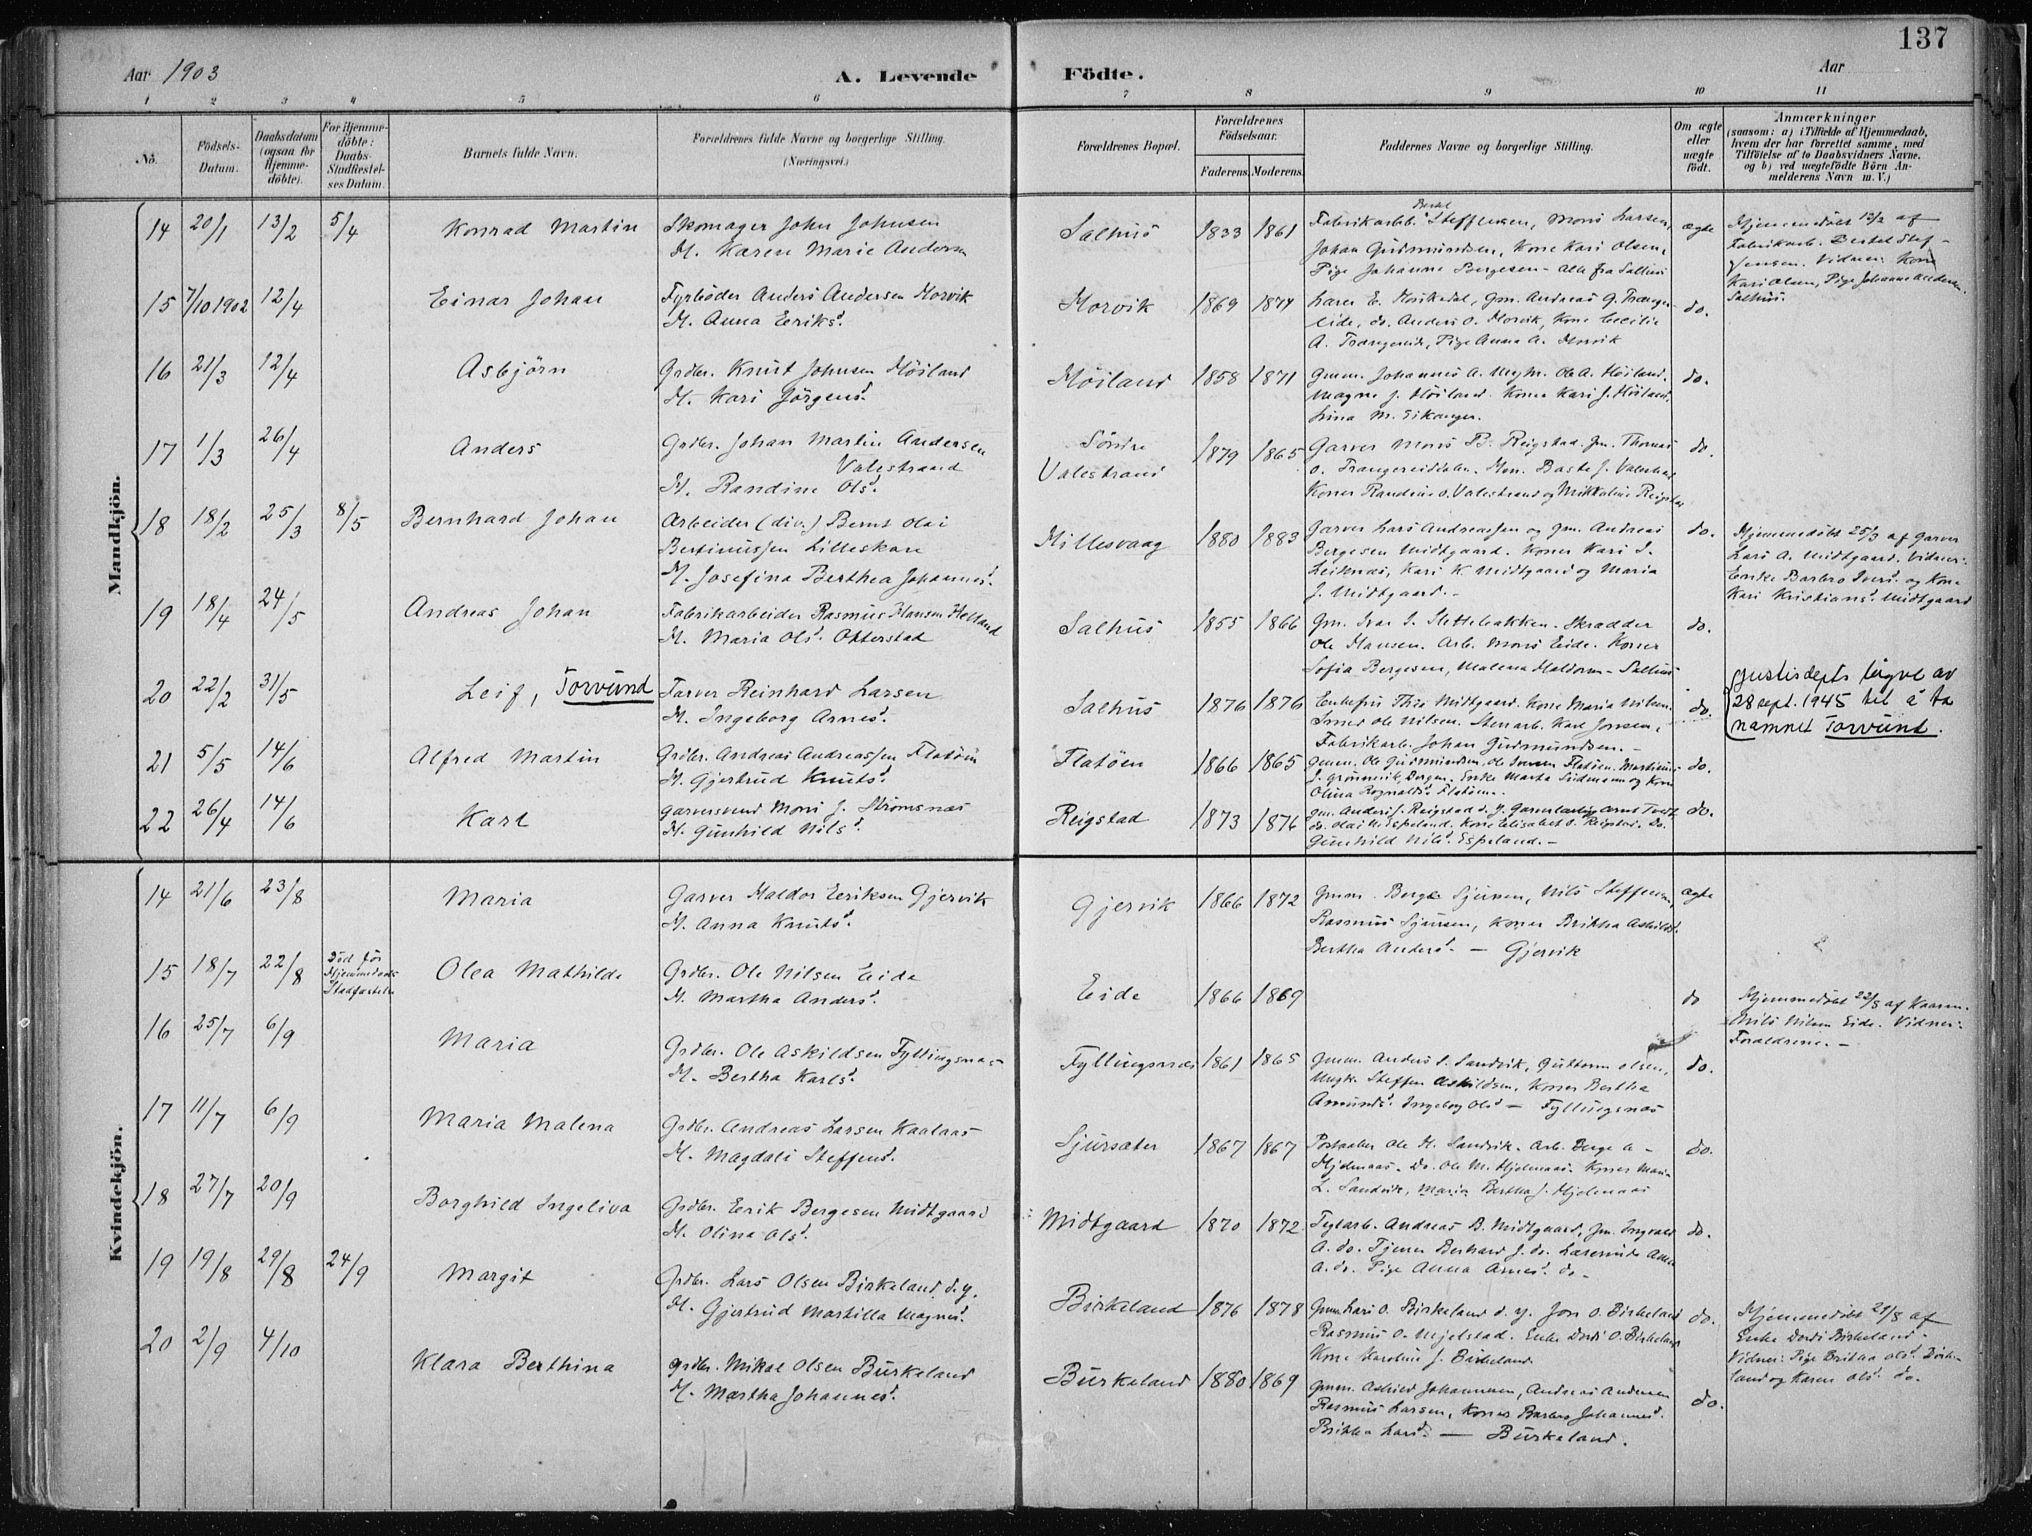 137
Aar 1903
A. Levende
Födte.
Aar
1 2 3 4 5 6 7 8 9 10 11
No.
Födsels-
Datum.
Daabsdatum
(ogsaa for
Hjemme-
döbte).
For Hjemme-
döbte:
Daabs-
Stadfæstel-
ses Datum.
Barnets fulde Navn.
Forældrenes fulde Navne og borgerlige Stilling.
(Næringsvei.)
Forældrenes Bopæl.
Forældrenes
Födselsaar.
Faderens. Moderens.
Faddernes Navne og borgerlige Stilling.
Om ægte
eller
uægte
födt.
Anmærkninger
(saasom: a) i Tilfælde af Hjemmedaab,
hvem der har forrettet samme, med
Tilföielse af to Daabsvidners Navne,
og b) ved uægtefödte Börn An-
melderens Navn m. V.)
Mandkjön.
14 20/1 13/2 5/4 Konrad Martin
Skomager John Johnsen
H. Karen Marie Andersn
Salhus 1833 1861
Fabrikarb. Bertel Steffensen, Mons Larsen,
Johan Gudmundsen, Kone Kari Olsen,
Pige Johanne Bergesen - alle fra Salhus
ægte
Hjemmedøbt 13/2 af
Fabrikarb. Bertel Stef-
fensen. Vidner: Kone
Kari Olsen, Pige Johanne Andersen
Salhus.
15 7/10 1902 12/4 Einar Johan
Fyrbøder Anders Andersen Horvik
H. Anna Eeriksd.
Horvik 1869 1874
Andreas G. Trænge-
reide, do. Anders O. Horvik, Kone Cecilie
A. Trængereide, Pige Anna A. Horvik
do.
16 21/3 12/4 Asbjörn
Grdbr. Knut Johnsen Höiland
H. Kari Jörgensd.
Höiland 1858 1871
Gmm. Johannes A. Ungm. Ole A. Höiland.
Magne J. Höiland. Kone Kari J. Höiland,
M. Eikanger.
do.
17 1/3 26/4 Anders
Grdbr. Johan Martin Andersen
Valestrand
H. Randine Olsd.
Söndre
Valestrand 1879 1865
Garver Mons B. Reigstad. Gm. Thomas
Koner Randine O. Valestrand og Mikkaline Reigstad
do.
18 18/2 25/3 8/5 Bernhard Johan
Arbeider (div.) Bernt Olai
Bertinussen Lilleskare
H. Josefina Berthea Johannesd.
Hillesvaag 1880 1883
Garver Lars Andreassen og Gm. Andreas
Bergesen Midtgaard. Koner Kari S.
Leiknes, Kari K. Midtgaard og Maria
J. Midtgaard. -
do.
Hjemmedøbt 25/3 af Garver
Lars A. Midtgaard. Vidner:
Enke Barbro Iversd. og Kone
Kari Kristiansd. Midtgaard
19 18/4 24/5 Andreas Johan
Fabrikarbeider Rasmus Hansen Helland
H. Maria Olsd. Otterstad
Salhus 1855 1866
Gm. Ivar J. Slettebakken. Skrædder
Ole Hansen. Arb. Mons Eide. Koner
Sofia Bergesen, Malena Haldorsen - Salhus
do.
20 22/2 31/5 Leif, Torvund
Farver Reinhard Larsen
H. Ingeborg Arnesd.
Salhus 1876 1876
Enkefru Midtgaard. Kone Maria Nilsen.
Ole Nilsen. Stenarb. Karl Jonsen,
Fabrikarb. Johan Gudmundsen. -
do.
Justisdepts løyve av
28 sept. 1945 til å ta
namnet Torvund.
21 5/5 14/6 Alfred Martin
Grdbr. Andreas Andreassen Flatöen
H. Gjertrud Knutsd.
Flatöen 1866 1865
Gmm. Ole Gudmundsen, Ole Flatöen. Martinus
J. Grönnevik, Bergen. Enke Marta Sudmann og Kone
Olina Rognaldsd. Flatöen.
do.
22 26/4 14/6 Karl
Garversvend Mons J. Strömsnæs
H. Gunhild Nilsd.
Reigstad 1873 1876
Gm. Anders J. Reigstad d. y. Garverlærling Arne Tveit
do. Olai N. Espeland. Kone Elisabet O. Reigstad. Do.
Gunhild Nilsd. Espeland. -
do.
Kvindekjön.
14 21/6 23/8 Maria
Garver Haldor Eeriksen Gjervik
H. Anna Knutsd.
Gjervik 1866 1872
Gmm. Berge Sjursen, Nils Steffensen,
Rasmus Sjursen, Koner Brithe Askildsd.
Bertha Andersd. - Gjervik
ægte
15 18/7 22/8 Död før
Hjemmedaabs
Stadfæstelse
Olea Mathilde
Grdbr. Ole Nilsen Eide
H. Martha Andersd.
Eide 1866 1869
do
Hjemmedøbt 22/8 af Kaarm.
Nils Nilsen Eide. Vidner:
Forældrene. -
16 25/7 6/9 Maria
Grdbr. Ole Askildsen Fyllingsnæs
H. Bertha Karlsd.
Fyllingsnæs 1861 1865
Gmm. Anders S. Sandvik, Guttorm Olsen,
Ungk. Steffen Askildsen, Koner Bertha
Amundsd. Ingeborg Olsd - Fyllingsnæs
do.
17 11/7 6/9 Maria Malena
Grdbr. Andreas Larsen Kaalaas
H. Magdali Steffensd.
Sjursæter 1867 1867
Postaabner Ole H. Sandvik. Arb. Berge A
Hjelmaas. Do. Ole M. Hjelmaas. Koner
L. Sandvik, Maria Bertha J. Hjelmaas
do.
18 27/7 20/9 Borghild Ingeliva
Grdbr. Eerik Bergesen Midtgaard
H. Olina Olsd.
Midtgaard 1870 1872
Teglarb. Andreas B. Midtgaard, Gm. Ingvald
A. do. Tjener Bernhard J. do.
A. do. Pige Anna Arnesd. do -
do.
19 19/8 29/8 24/9 Margit
Grdbr. Lars Olsen Birkeland, d. y.
H. Gjertrud Martilla Magnesd.
Birkeland 1876 1878
Gmm. Lars O. Birkeland d. y. Jon O. Birkeland
Rasmus O. Mjelstad. Enke Dordi O. Birkeland
Kone Karoline J. Birkeland
do.
Hjemmedøbt 29/8 af
Enke Dordi Birkeland -
Vidner: Pige Britha Olsd. Birke-
land og Karen Olsd. do.
20 2/9 4/10 Klara Berthina
Grdbr. Mikal Olsen Burkeland
H. Martha Johannesd.
Burkeland 1880 1869
Gmm. Askild Johannesen, Andreas Andersen
Rasmus Larsen, Koner Barbro Johannesd.
Britha Larsd. - Burkeland.
do.